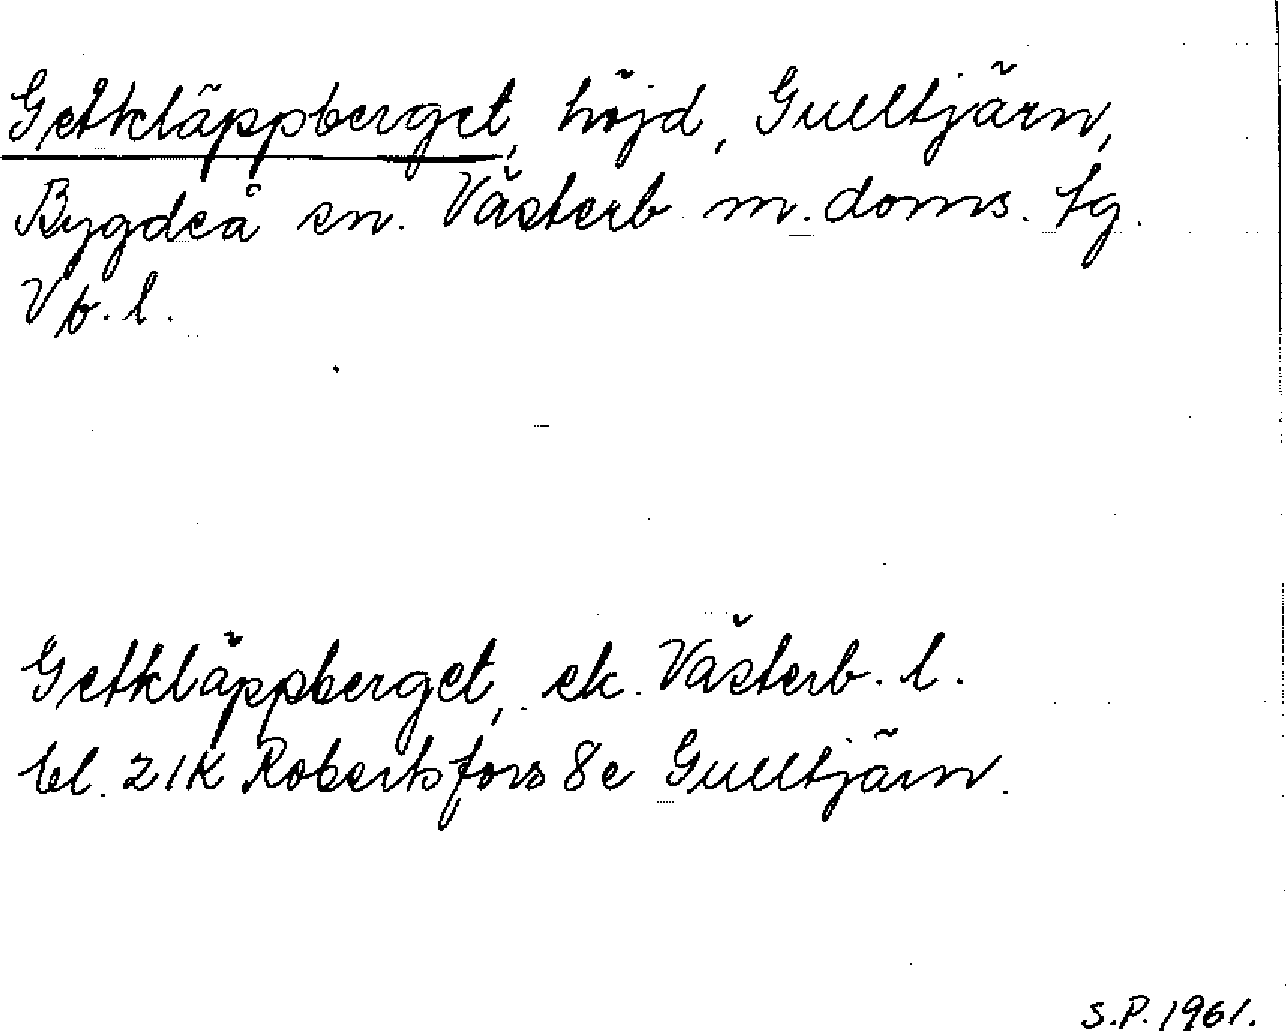 Getkläppberget, höjd, Gulltjärn,
Bygdeå sn. Västerb m. doms. tg.
Vb. l.
Getkläppberget, ek. Västerb. l.
bl. 21K Robertsfors 8e Gulltjärn.
S.P. 1961.